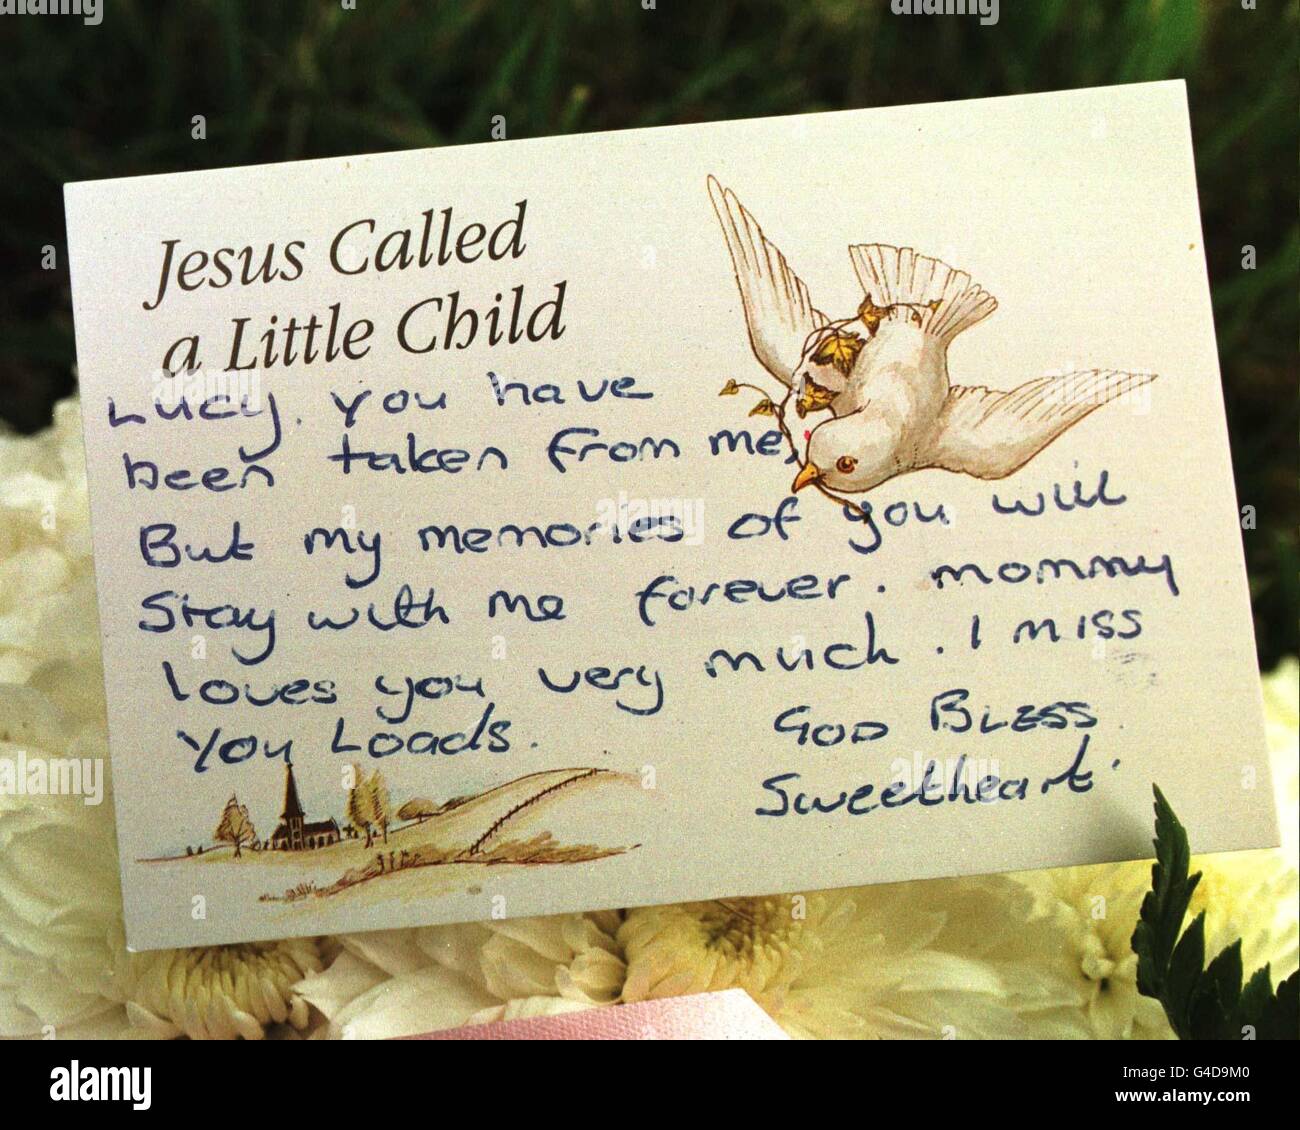 Jesus Called
a Little Child
Lucy. You have
been taken from me,
But my memories of you will
Stay with me forever. mommy
loves you very much. I miss
You Loads.
GOD BLESS.
Sweetheart.
alamy
Image ID: G4D9M0
www.alamy.com